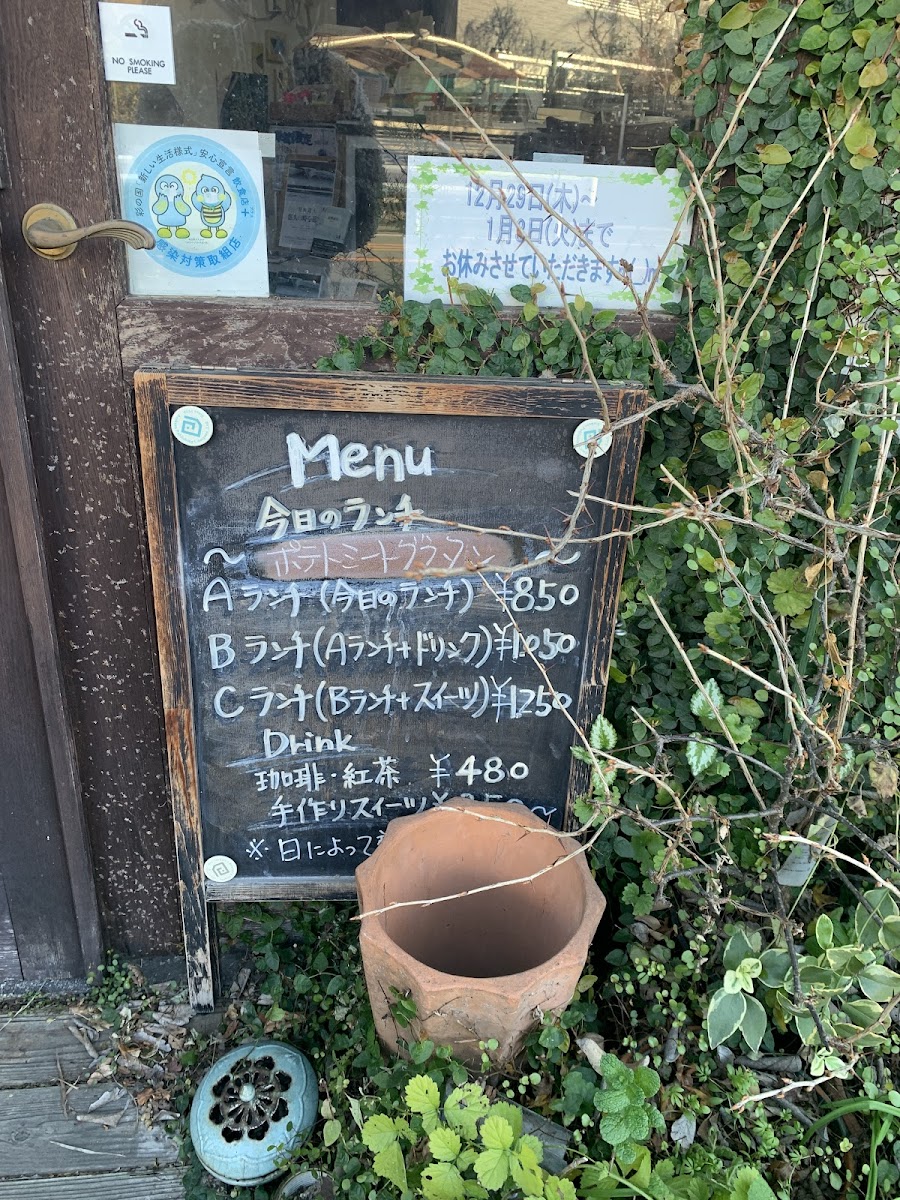 NO SMOKING
PLEASE
彩の国「新しい生活様式」安心宣言 飲食店+
感染対策取組店
12月29日(木)~
1月3日(火)まで
お休みさせていただきますm(_ _)m
Menu
今日のランチ
~ポテトミートグラタン~
Aランチ(今日のランチ)¥850
Bランチ(Aランチ+ドリンク)¥1,050
Cランチ(Bランチ+スイーツ)¥1,250
Drink
珈琲・紅茶 ¥480
手作りスイーツ ¥350~
※日によって